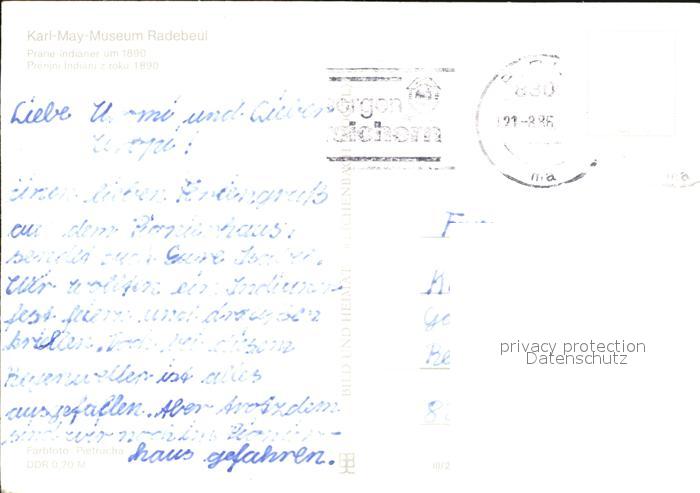 Karl-May-Museum Radebeul
Prärie-Indianer um 1890
Prerijní Indiáni z roku 1890
Liebe Uromi und Lieber
Uropi!
einen lieben Feriengruß
aus dem Pionierhaus,
sendet euch Eure
Wir wollten ein Indianer-
fest feiern und draußen
grillen. Doch bei diesem
Regenwetter ist alles
ausgefallen. Aber trotzdem
sind wir noch ins Pionier-
haus gefahren.
Farbfoto: Pietrucha
DDR 0,70 M
BILD UND HEIMAT REICHENBACH
sorgen
sichern
21-8.86
privacy protection
Datenschutz